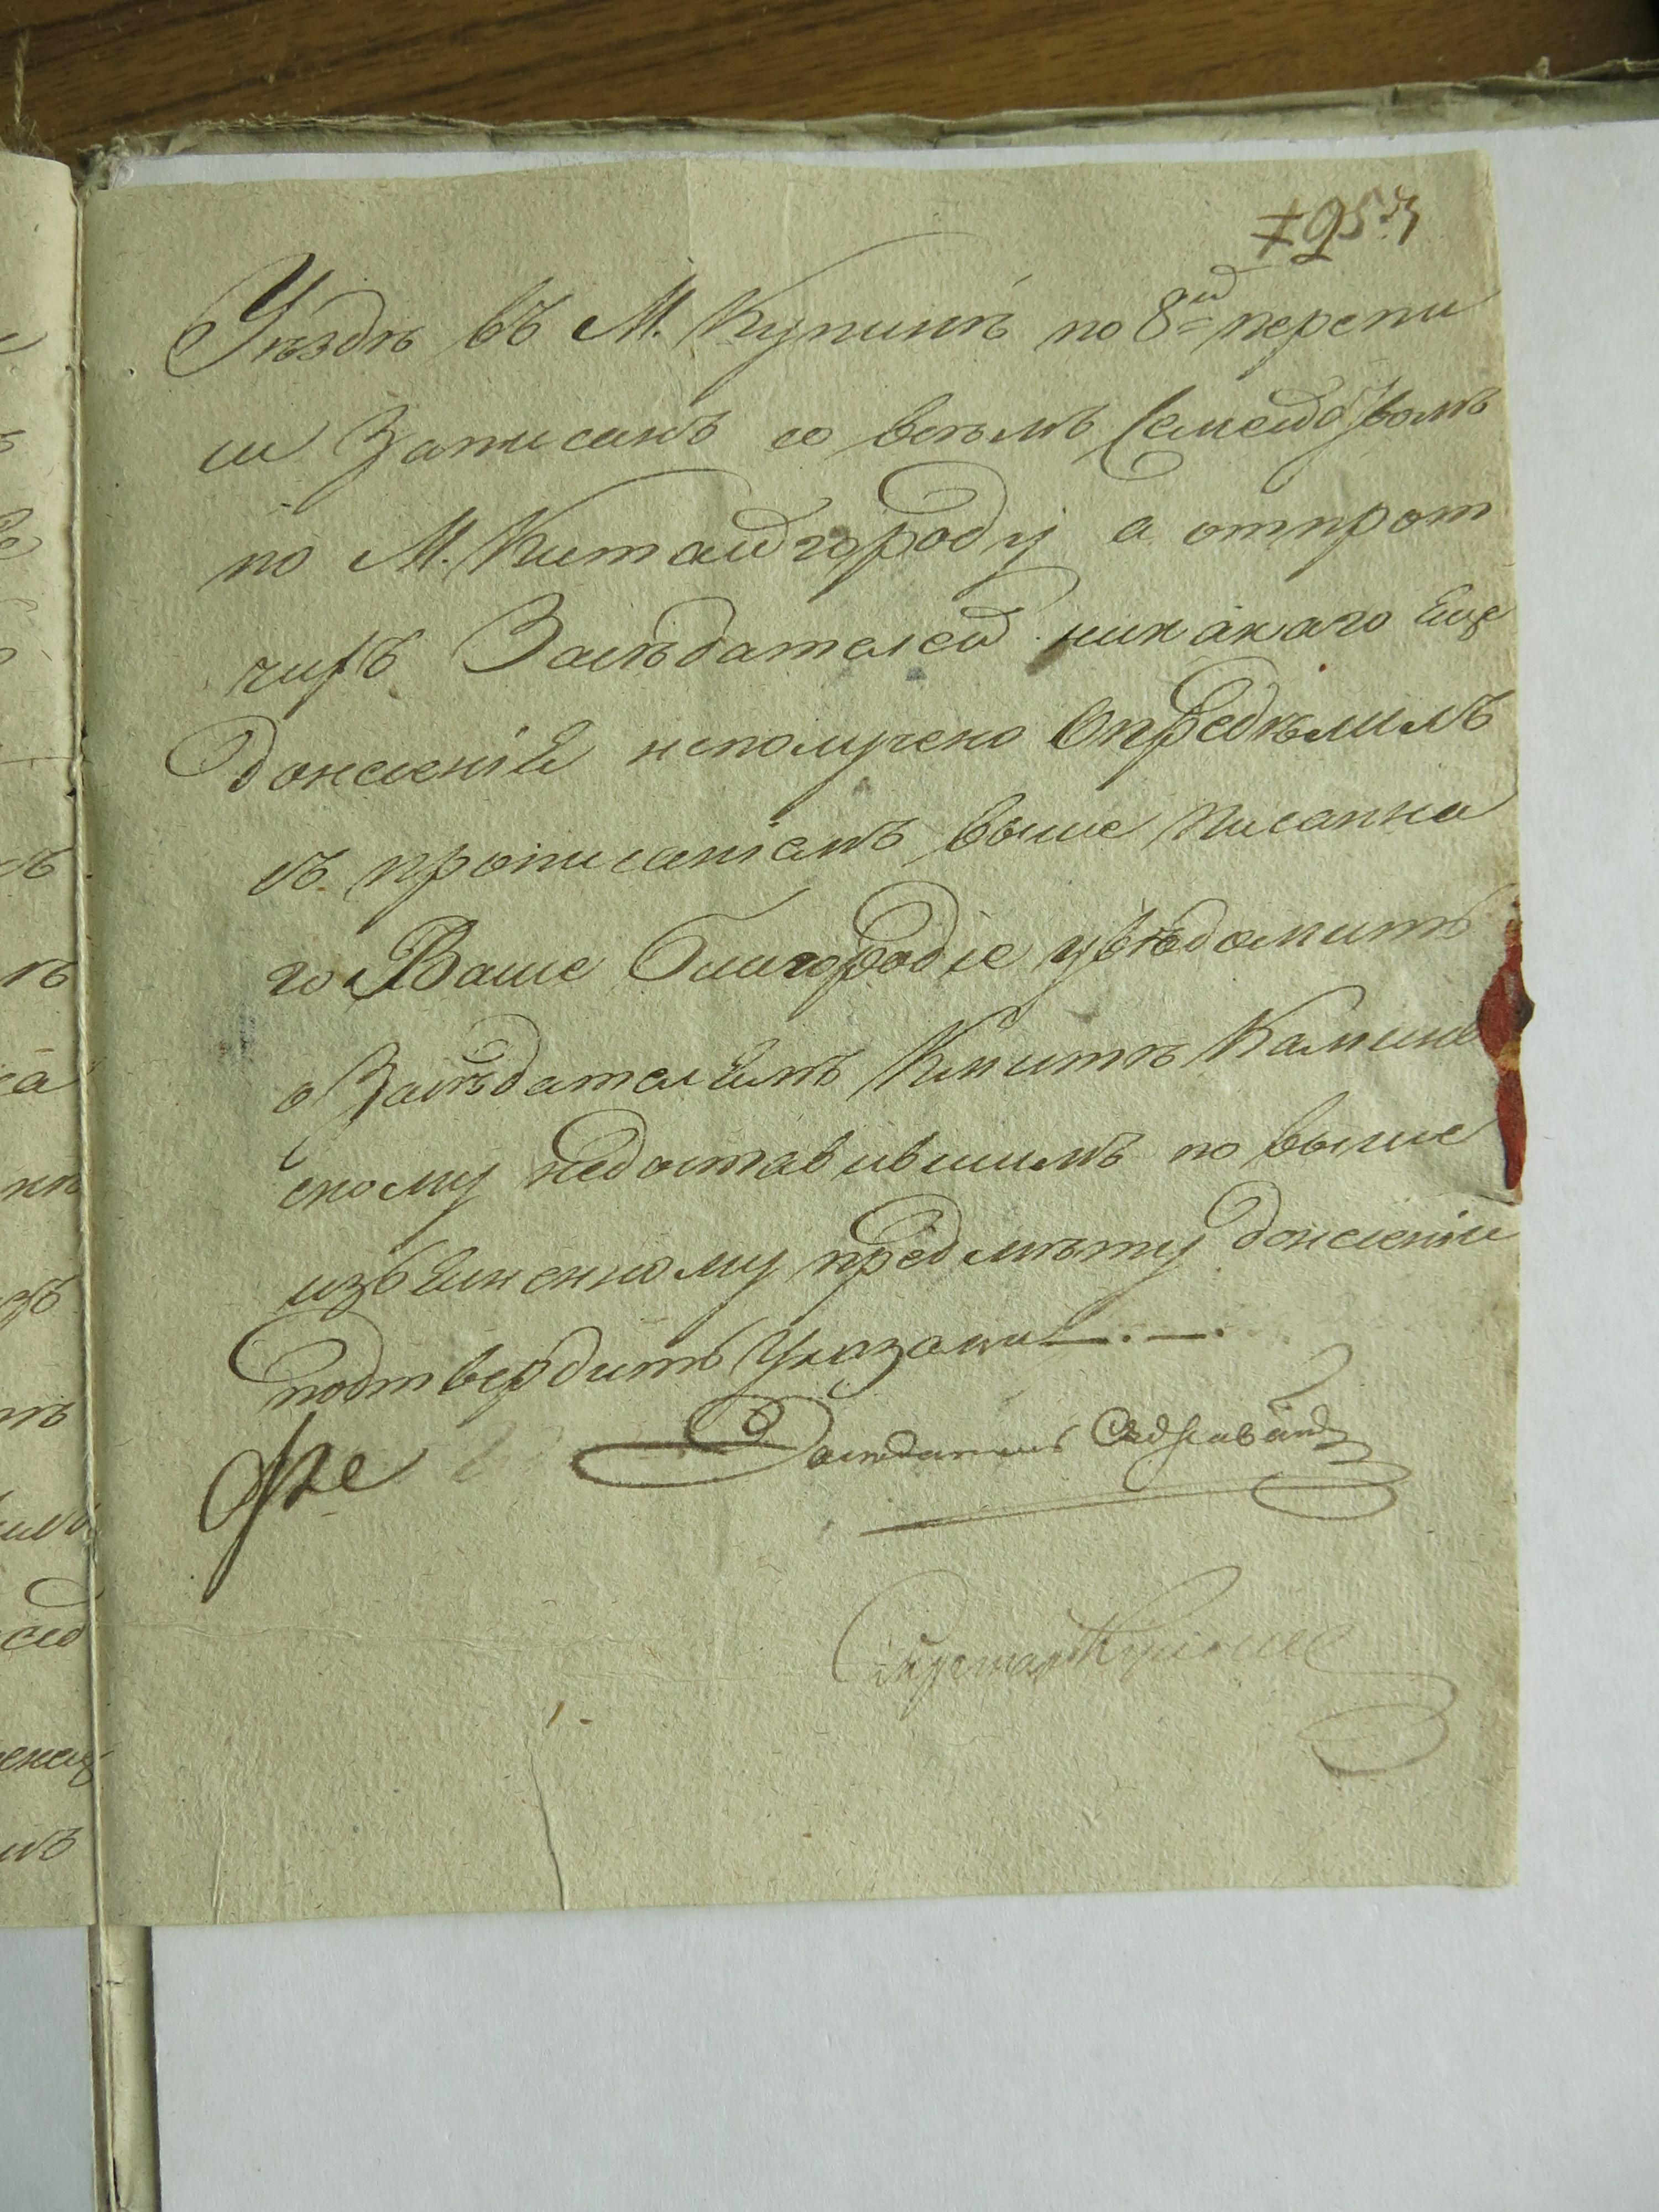 Уѣздѣ въ М. Купинѣ по 8й перепи
си Записанъ со всѣмъ Семействомъ
по М. Китайгороду а отпрот
чихъ Засѣдателей никакаго Еще
донесенія неполучено Опредѣлилъ
съ прописаніемъ выше писанна
го Ваше Благородіе увѣдомить
а Засѣдателемъ Кмитѣ Камин
скому недоставившимъ по выше
изъясненному предмѣту донесеніи
подтвердить Указами
Засѣдатель